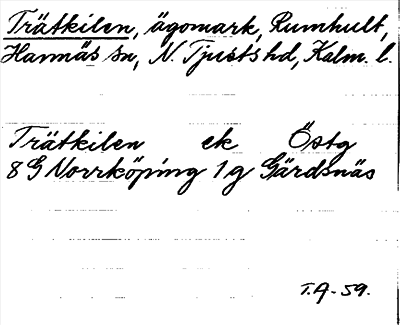 Trätkilen, ägomark, Rumhult,
Hannäs sn, N. Tjusts hd, Kalm. l.
Trätkilen ek Östg
8G Norrköping 1g Gärdsnäs
T.A-59.